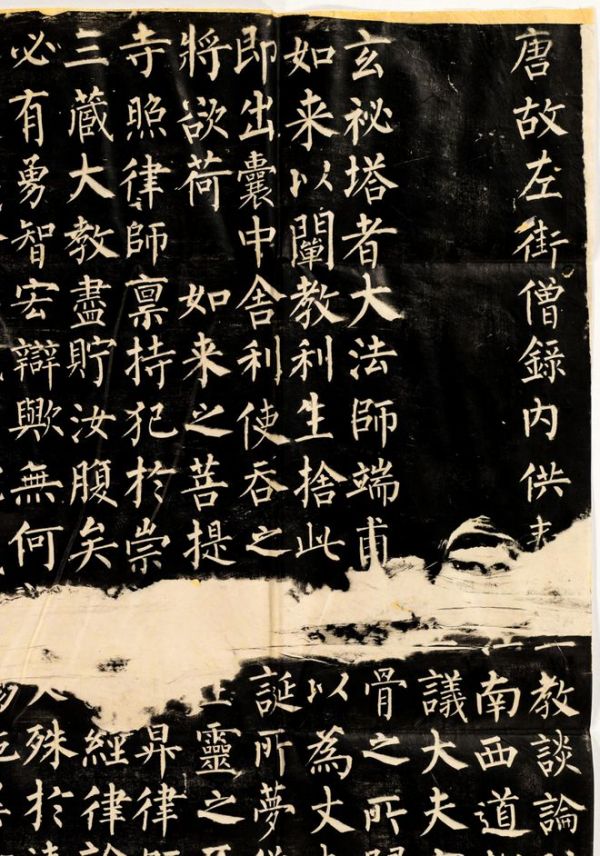 唐故左街僧錄內供 教談論
南西道
議大夫
玄祕塔者大法師端甫 骨之所
如来以闡教利生捨此 以為丈
即出囊中舍利使吞之 誕所夢
將欲荷 如来之菩提 靈之
寺照律師禀持犯於崇 昇律
三藏大教盡貯汝腹矣 經律
必有勇智宏辯歟無何 殊於